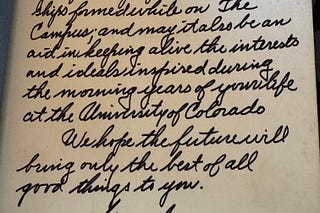 ships formed while on The
Campus; and may it also be an
aid in keeping alive the interests
and ideals inspired during
the morning years of your life
at the University of Colorado
We hope the future will
bring only the best of all
good things to you.